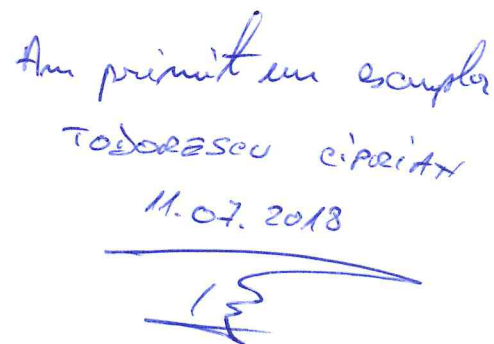 Am primit un exemplar
TODORESCU CIPRIAN
11.07.2018